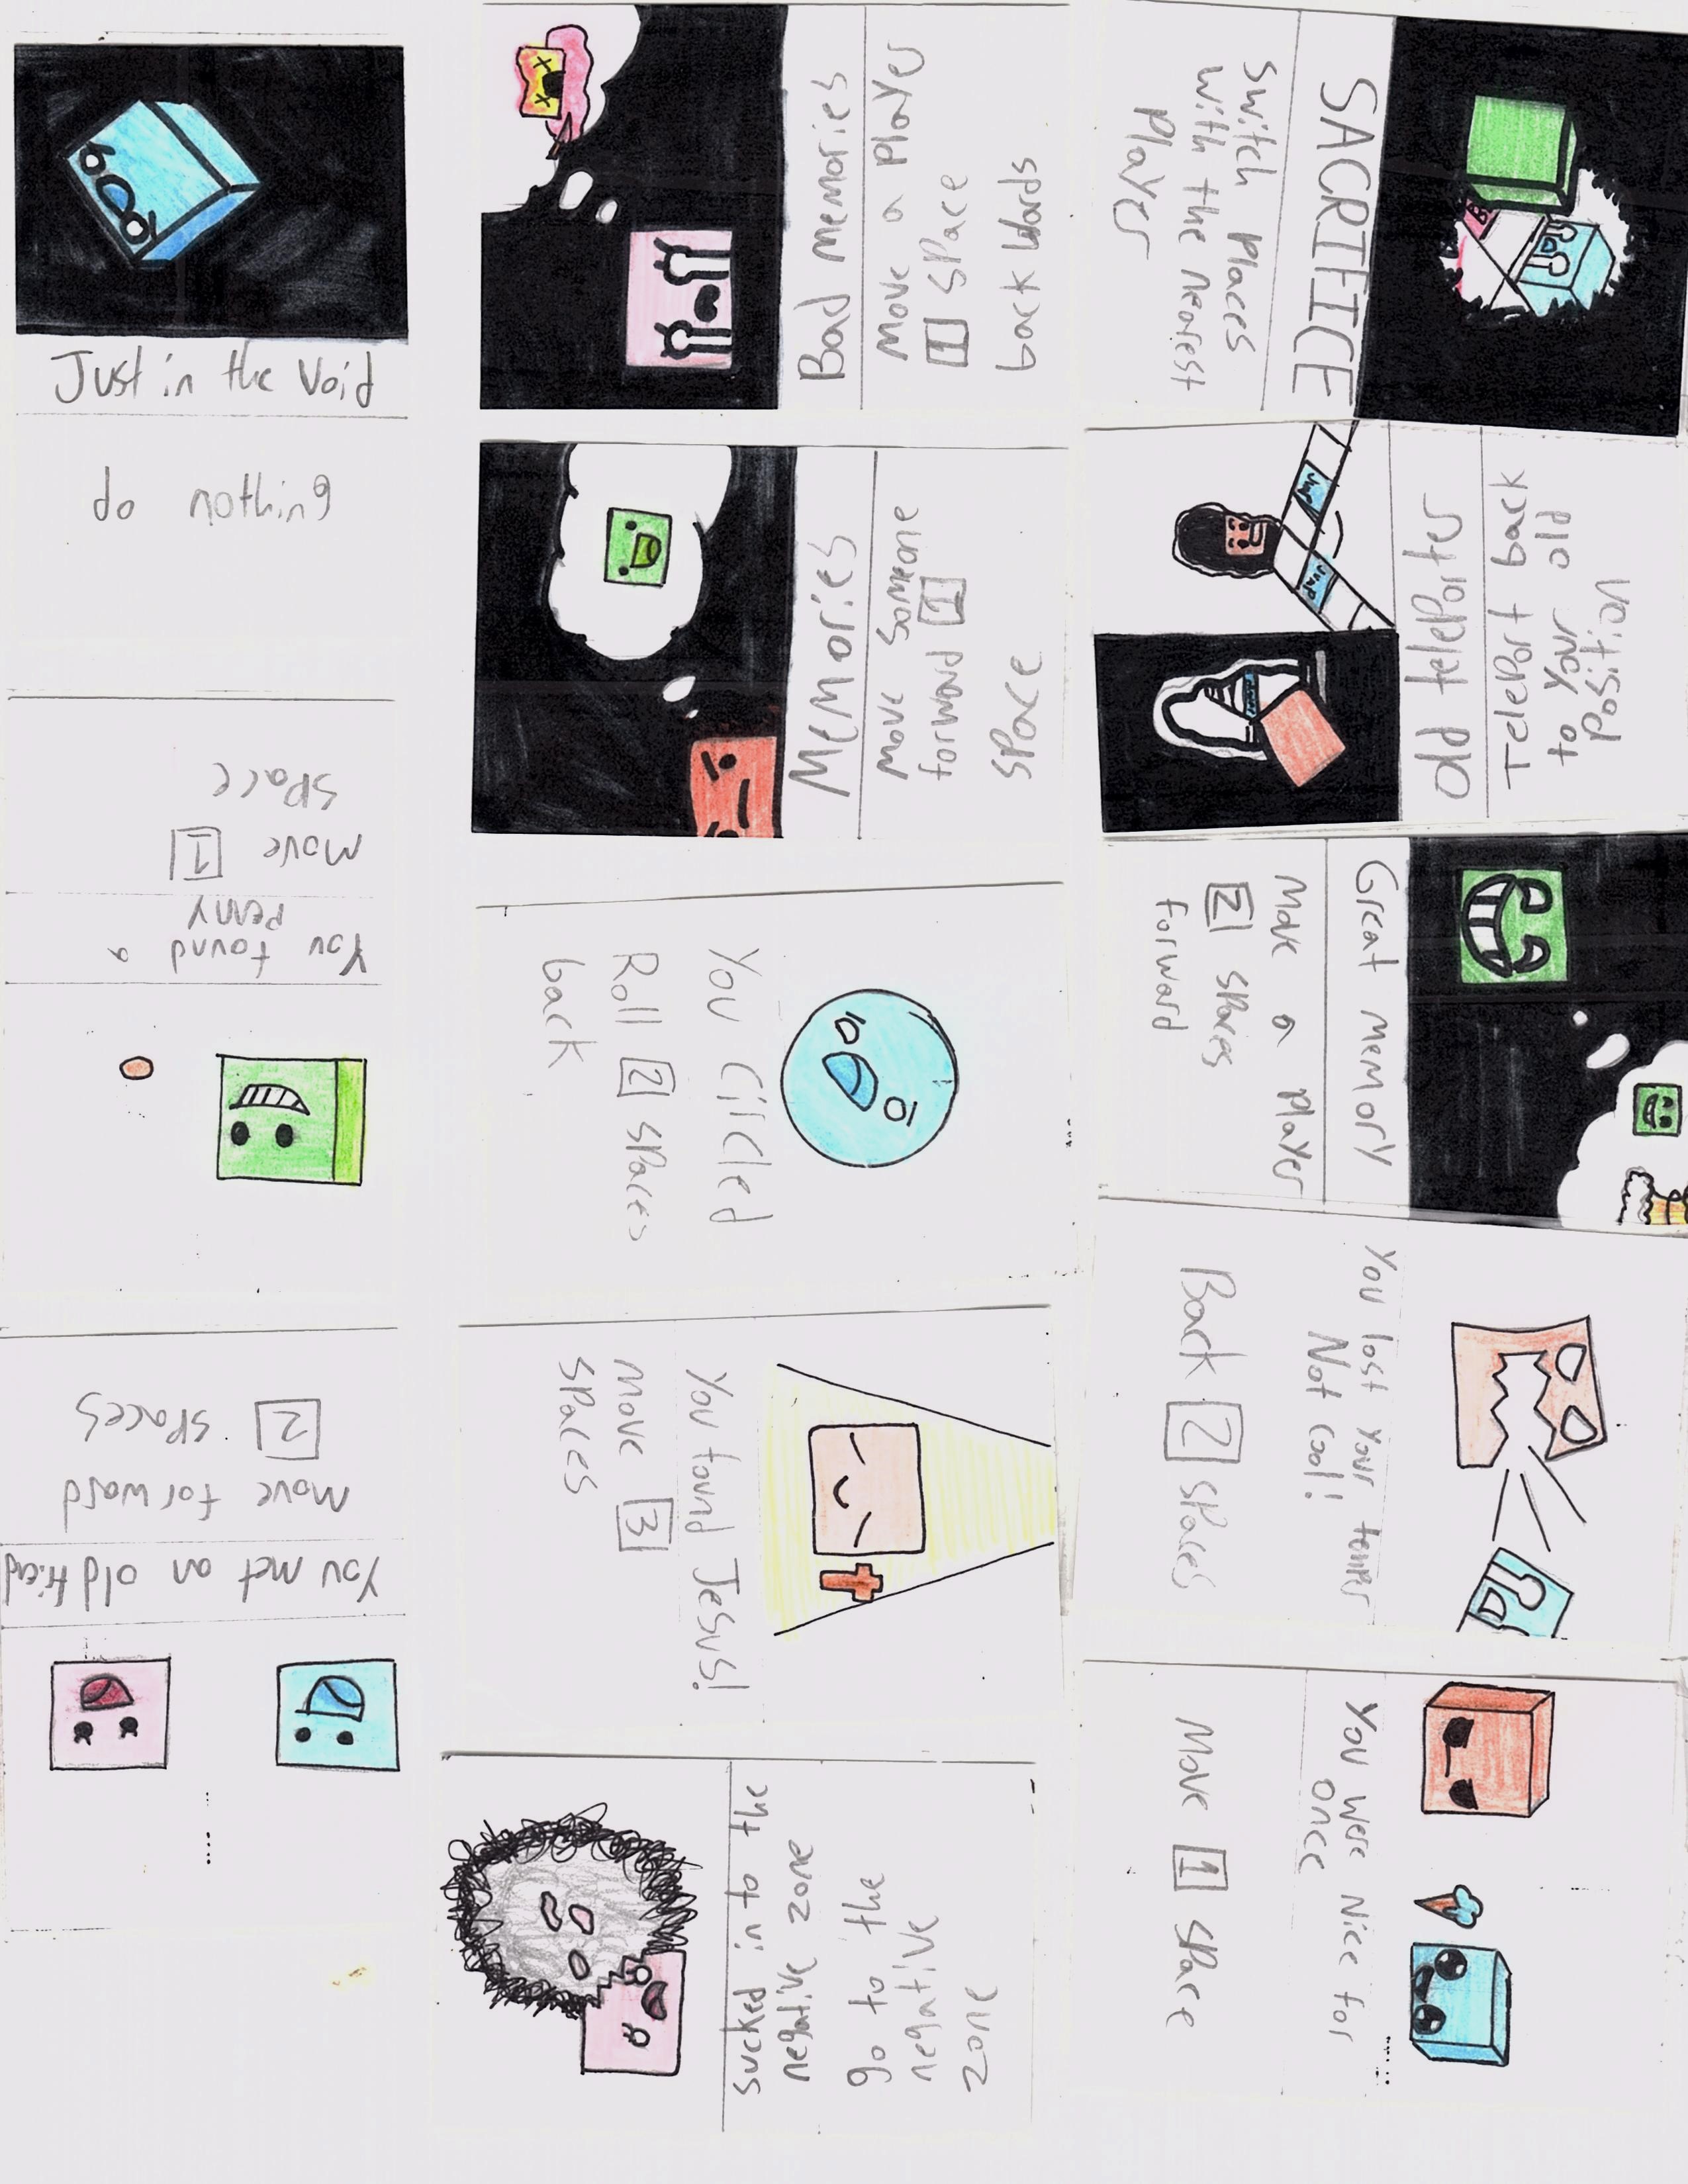 Just in the Void
do nothing
You found a
PENNY
Move 1
SPace
You met an old friend
Move forward
2 SPaces
Bad Memories
Move a Player
1 SPace
backwards
Memories
Move Someone
forward 1
SPace
You Circled
Roll 2 SPaces
back
You found Jesus!
Move 3
SPaces
sucked in to the
negative zone
go to the
negative
zone
SACRIFICE
Switch Places
with the nearest
Player
JumP
JumP
old telePorter
TelePort back
to Your old
Position
Great Memory
Move a Player
2 SPacies
forward
You lost Your temper
Not cool!
Back 2 SPaces
You were Nice for
Once
Move 1 SPace